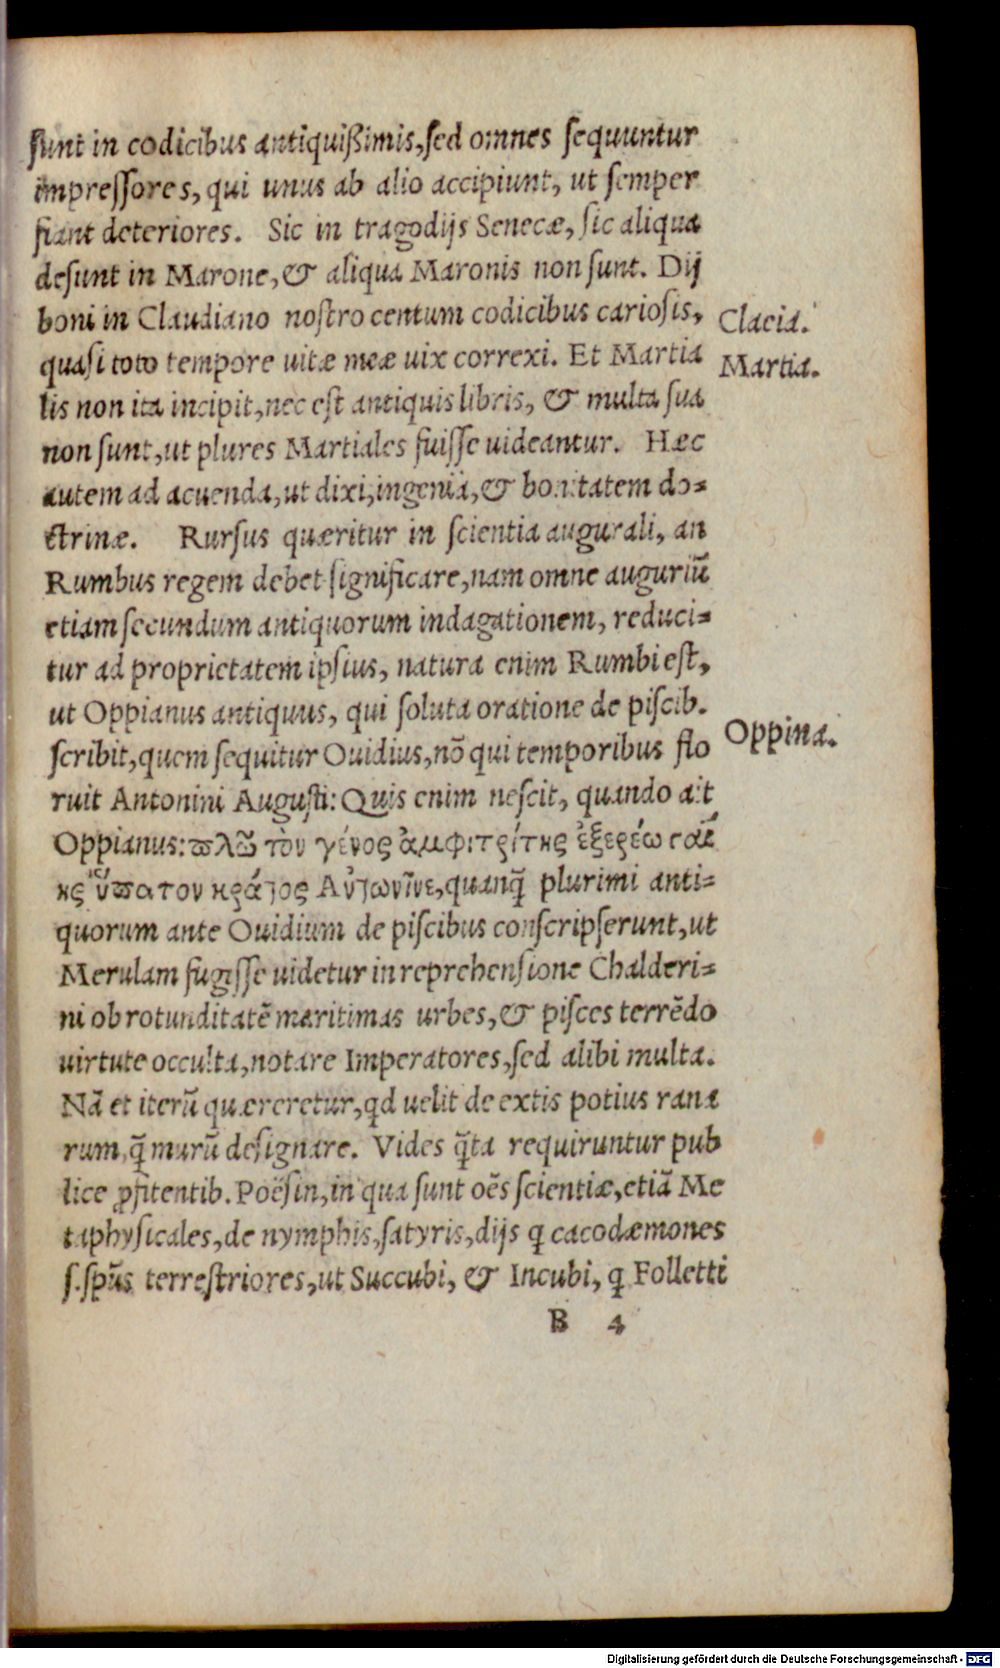 sunt in codicibus antiquißimis, sed omnes sequuntur
impressores, qui unus ab alio accipiunt, ut semper
fiant deteriores. Sic in tragodijs Senecæ, sic aliqua
desunt in Marone, & aliqua Maronis non sunt. Dij
boni in Claudiano nostro centum codicibus cariosis,
Clacia.
quasi toto tempore uitæ meæ uix correxi. Et Martia
Martia.
lis non ita incipit, nec est antiquis libris, & multa sua
non sunt, ut plures Martiales fuisse uideantur. Hæc
autem ad acuenda, ut dixi, ingenia, & bonitatem do-
ctrinæ. Rursus quæritur in scientia augurali, an
Rumbus regem debet significare, nam omne auguriũ
etiam secundum antiquorum indagationem, reduci-
tur ad proprietatem ipsius, natura enim Rumbi est,
ut Oppianus antiquus, qui soluta oratione de piscib.
Oppina.
scribit, quem sequitur Ouidius, nõ qui temporibus flo
ruit Antonini Augusti: Quis enim nescit, quando ait
Oppianus: πλῶ τὸν γένος ἀμφιτρίτης ἐξερέω γαί
ης ὕπατον κράτος Αὐτωνῖνε, quanq̃ plurimi anti-
quorum ante Ouidium de piscibus conscripserunt, ut
Merulam fugisse uidetur in reprehensione Chalderi-
ni ob rotunditatẽ maritimas urbes, & pisces terrẽdo
uirtute occulta, notare Imperatores, sed alibi multa.
Nã et iterũ quæreretur, qd uelit de extis potius rana
rum, q̃ murũ designare. Vides q̃ta requiruntur pub
lice ꝓfitentib. Poësin, in qua sunt oẽs scientiæ, etiã Me
taphysicales, de nymphis, satyris, dijs q̃ cacodæmones
s. spũs terrestriores, ut Succubi, & Incubi, q̃ Folletti
B 4
Digitalisierung gefördert durch die Deutsche Forschungsgemeinschaft - DFG